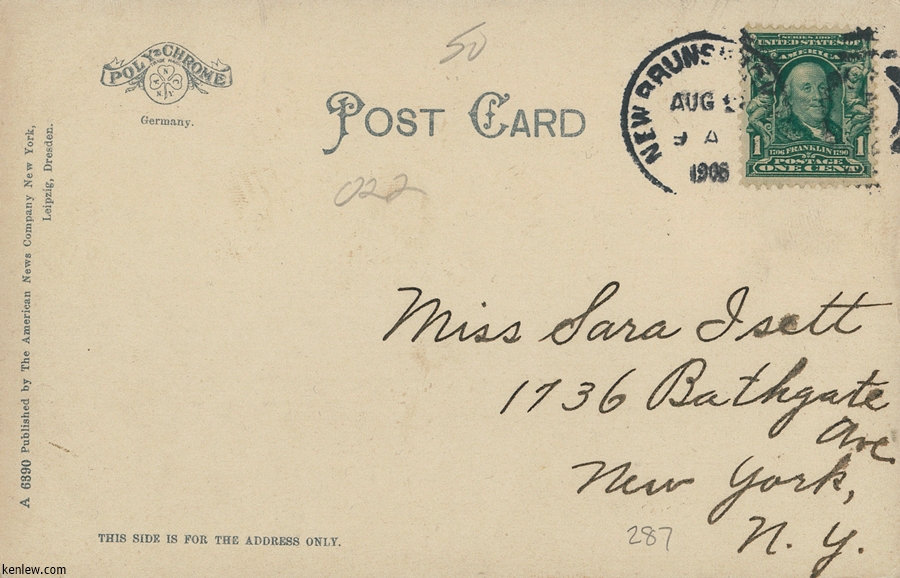 POLY-CHROME
TRADE MARK
A N C
N.Y.
Germany.
POST CARD
50
022
NEW BRUNS
AUG
9 A
1906
SERIES 1902
UNITED STATES OF
AMERICA
1 1706 FRANKLIN 1790 1
POSTAGE
ONE CENT
A 6390 Published by The American News Company New York,
Leipzig, Dresden.
Miss Sara Isett
1736 Bathgate
Ave
New York,
N. Y.
287
THIS SIDE IS FOR THE ADDRESS ONLY.
kenlew.com